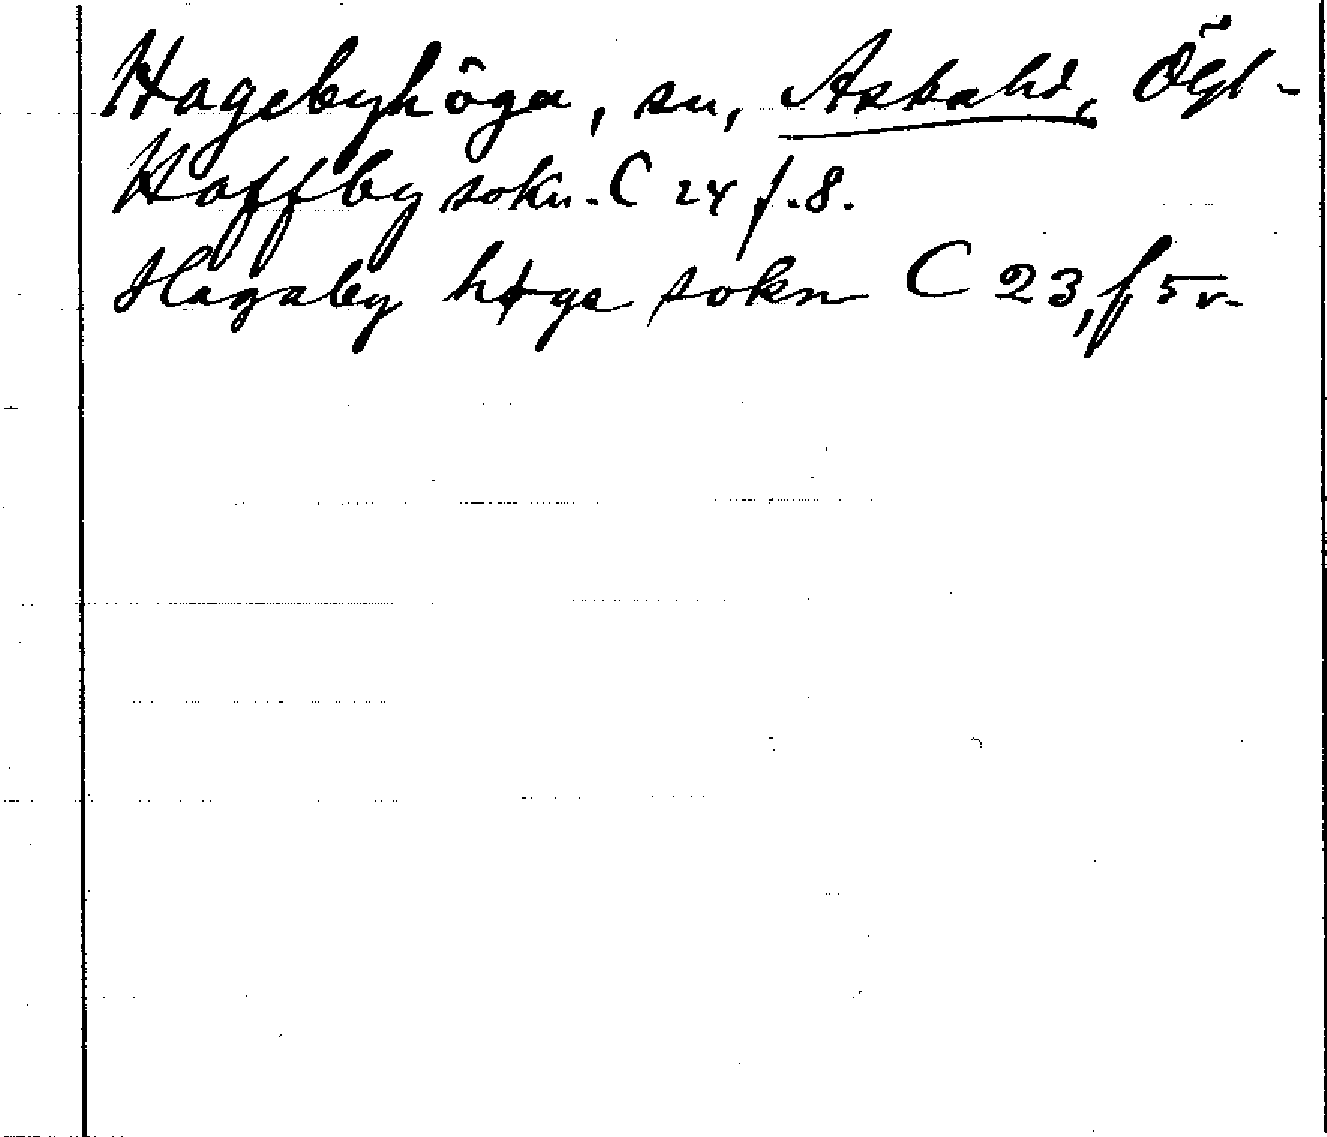 Hagebyhöga, sn, Askahd, Ögl-
Haffby sokn. C 24 f. 8.
Hagaby høga sokn C 23, f 5 v.